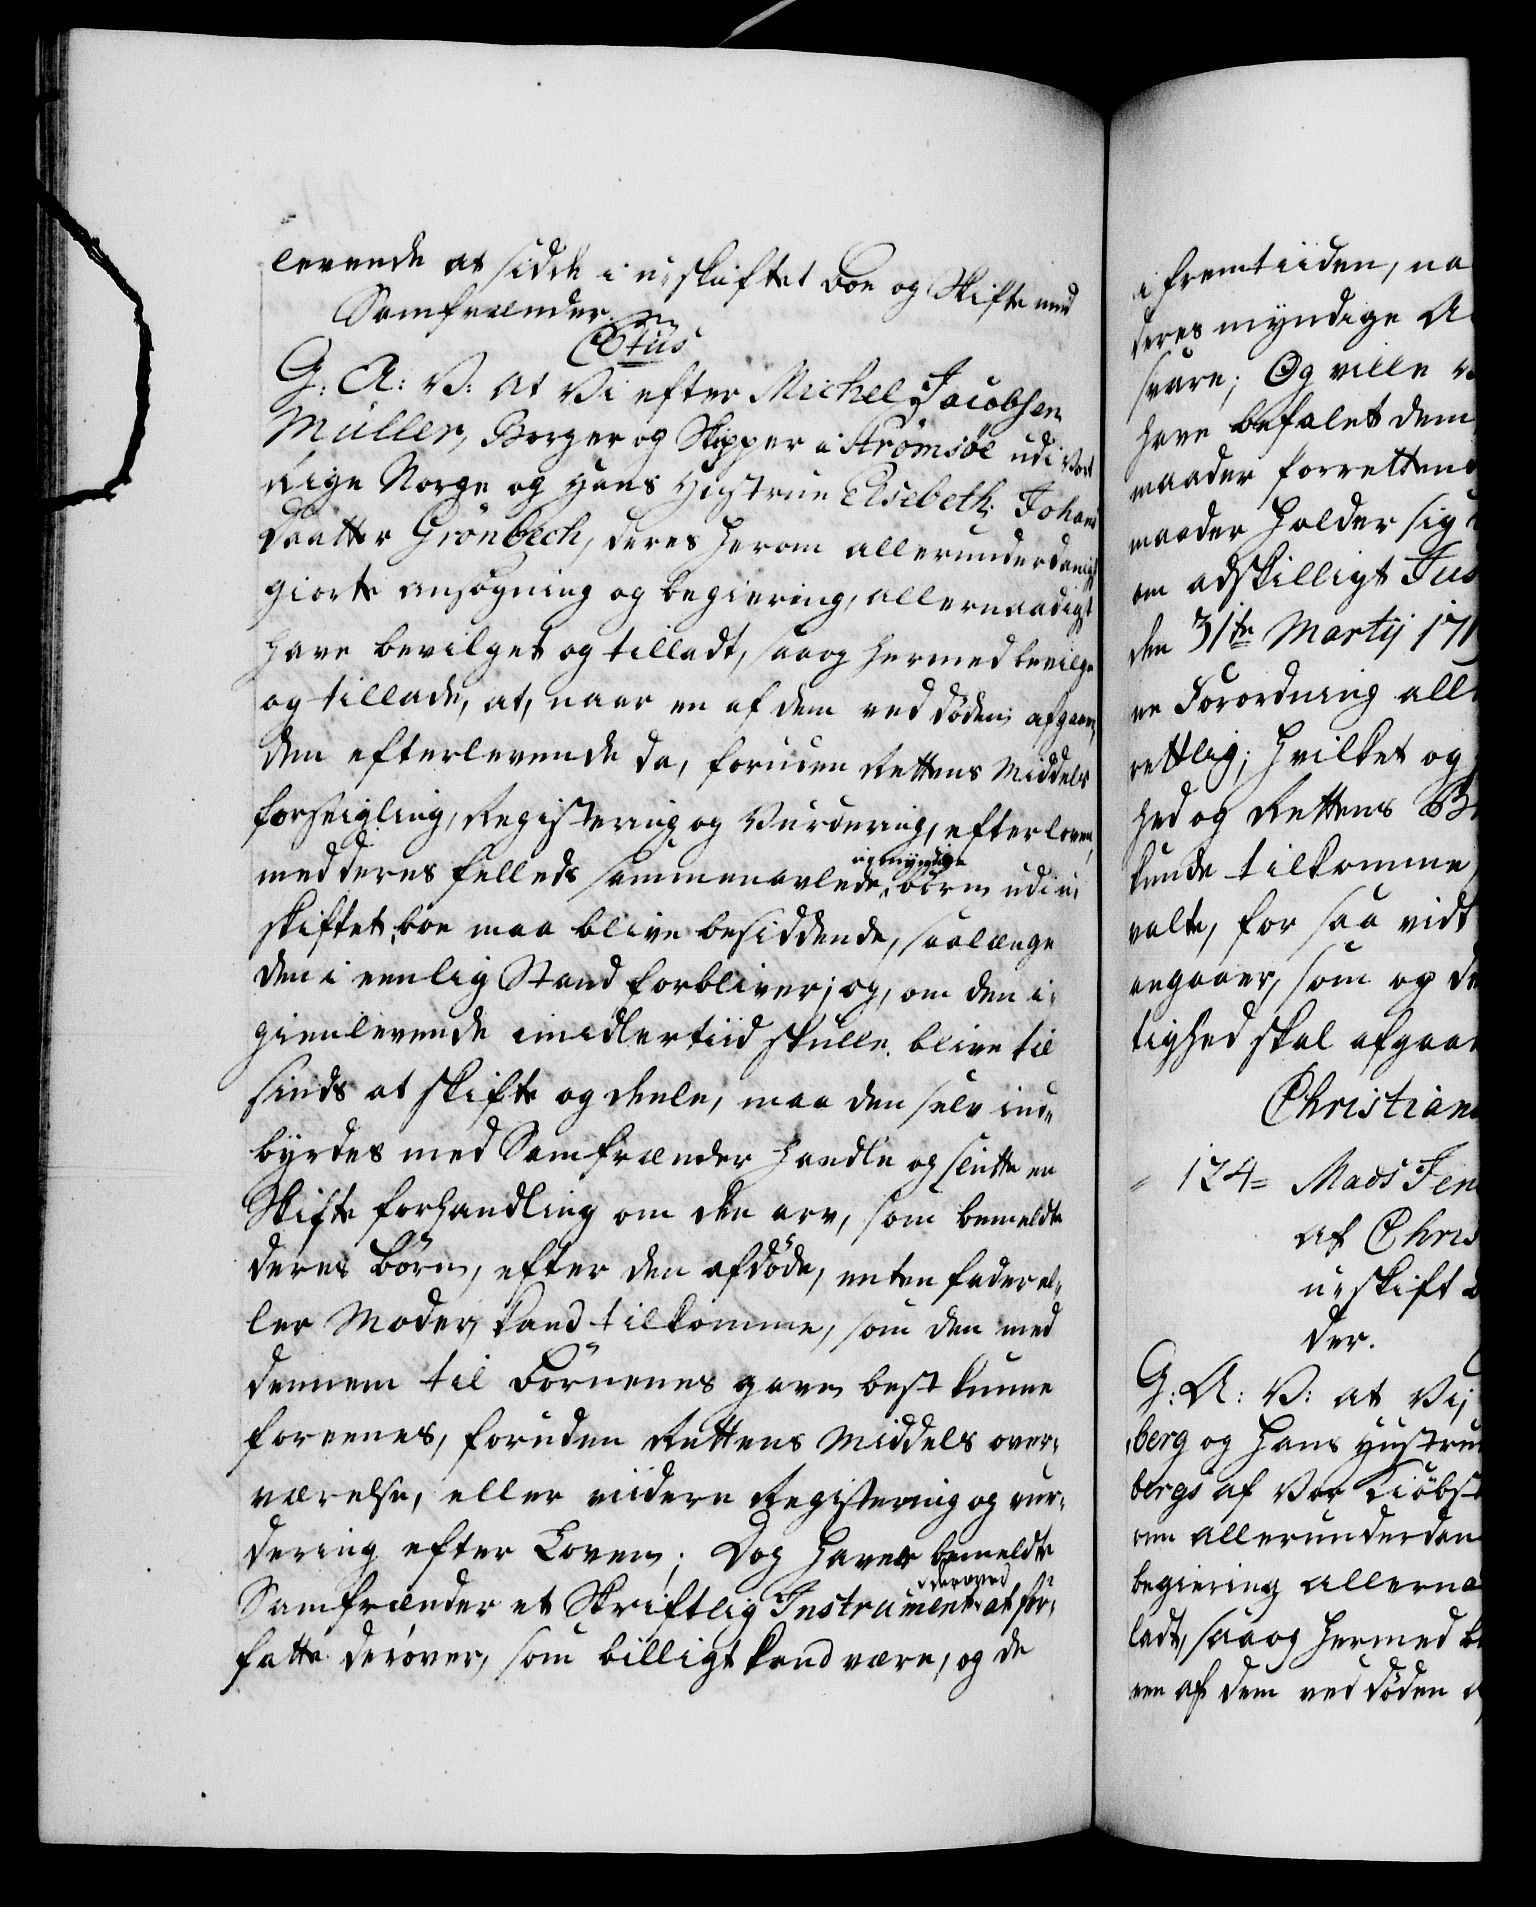 levende at sidde i u-skiftet Boe og Skifte med
Samfrænder.
C5tus
G: A: V: at Vi efter Michel Jacobsen
Müller, Borger og Skipper i Strømsöe udi Vort
Rige Norge og Hans Hustrue Elsebeth Johans
Daatter Grönbech, deres herom allerunderdanigst
giorte ansögning og begiering, allernaadigst
have bevilget og tilladt, saa og hermed bevilge
og tillade, at, naar en af dem ved döden afgaaer,
den efterlevende da, foruden Rettens Middels
forseigling, Registering og Vurdering, efter loven,
med deres felleds sammenavlede umyndige börn udi u-
skiftet boe maa blive besiddende, saalænge
den i eenlig Stand forbliver; og, om den i-
gienlevende imidlertiid skulle blive til
sinds at skifte og deele, maa den selv ind-
byrdes med Samfrænder handle og slutte en
Skifte forhandling om den arv, som bemeldte
deres Börn, efter den afdöde, enten fader el-
ler Moder, kand tilkomme, som den med
dennem til Börnenes gavn best kunne
foreenes, foruden Rettens Middels over-
værelse, eller viidere Registering og vur-
dering efter Loven; Dog haver bemeldte
Samfrænder et Skriftlig Instrument derover at for-
fatte derover, som billigt kand være, og de
i fremtiiden, na
deres myndige A
svare; Og ville v
have befalet dem
maader forrettend
maader holder sig
om adskilligt Jus
den 31te Martij 171
re Forordning all
rettlig; hvilket og
hed og Rettens B
kunde tilkomme
valte, for saa vidt
angaaer, som og de
tighed skal afgaae
Christian
= 124 = Mads Jen
af Chris
u-skift
der.
G: A: V: at Vi,
berg og Hans Hustrue
bergs af Vor Kiöbst
om allerunderdan
begiering allerna
ladt, saa og hermed be
een af dem ved döden